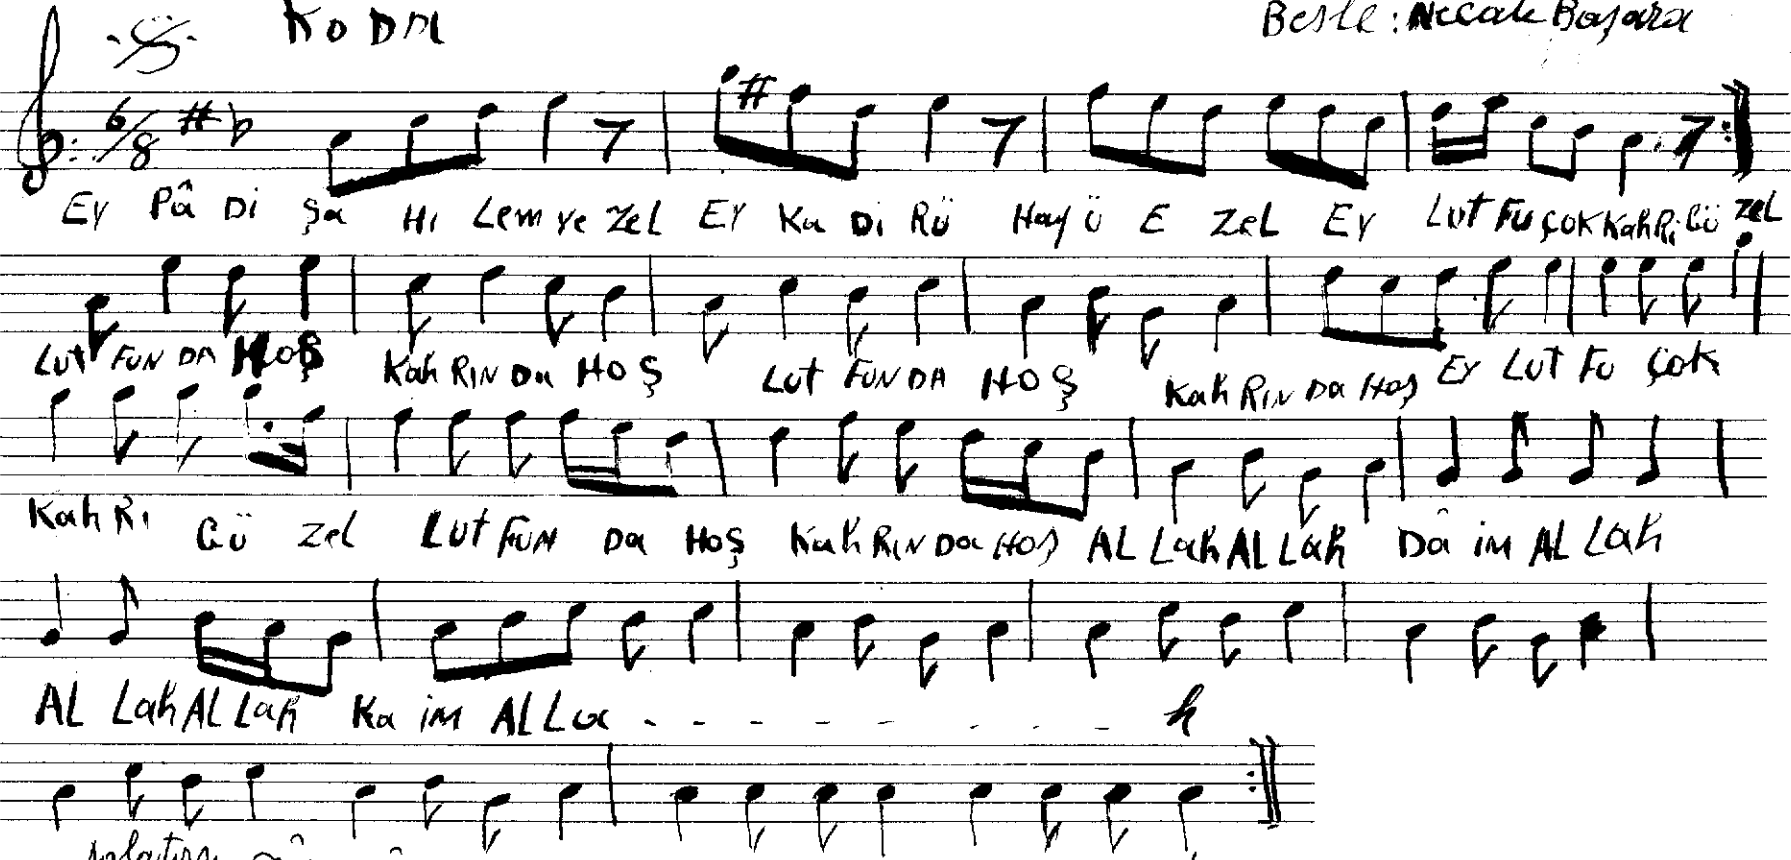 KODA Beste: Necati Başara
6/8
Ey Pâ Di Şa Hı Lem ye Zel Ey Ka Di Rü Hay ü E Zel Ey Lut Fu Çok Kah Rı Gü Zel
Lut Fun Da Hoş Kah Rın Da Hoş Lut Fun Da Hoş Kah Rın Da Hoş Ey Lut Fu Çok
Kah Rı Gü Zel Lut Fun Da Hoş Kah Rın Da Hoş Al Lah Al Lah Dâ im Al Lah
Al Lah Al Lah Ka im Al La - - - - - - - - h